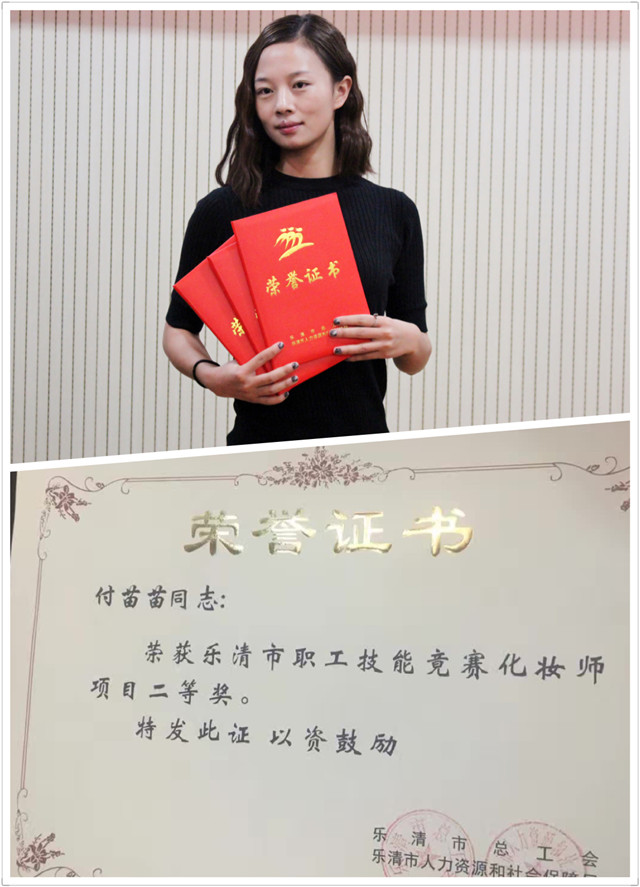 荣誉证书
荣
乐清市总
乐清市人力资源和
荣誉证书
付苗苗同志:
荣获乐清市职工技能竞赛化妆师
项目二等奖。
特发此证 以资鼓励
乐清市总工会
乐清市人力资源和社会保障局